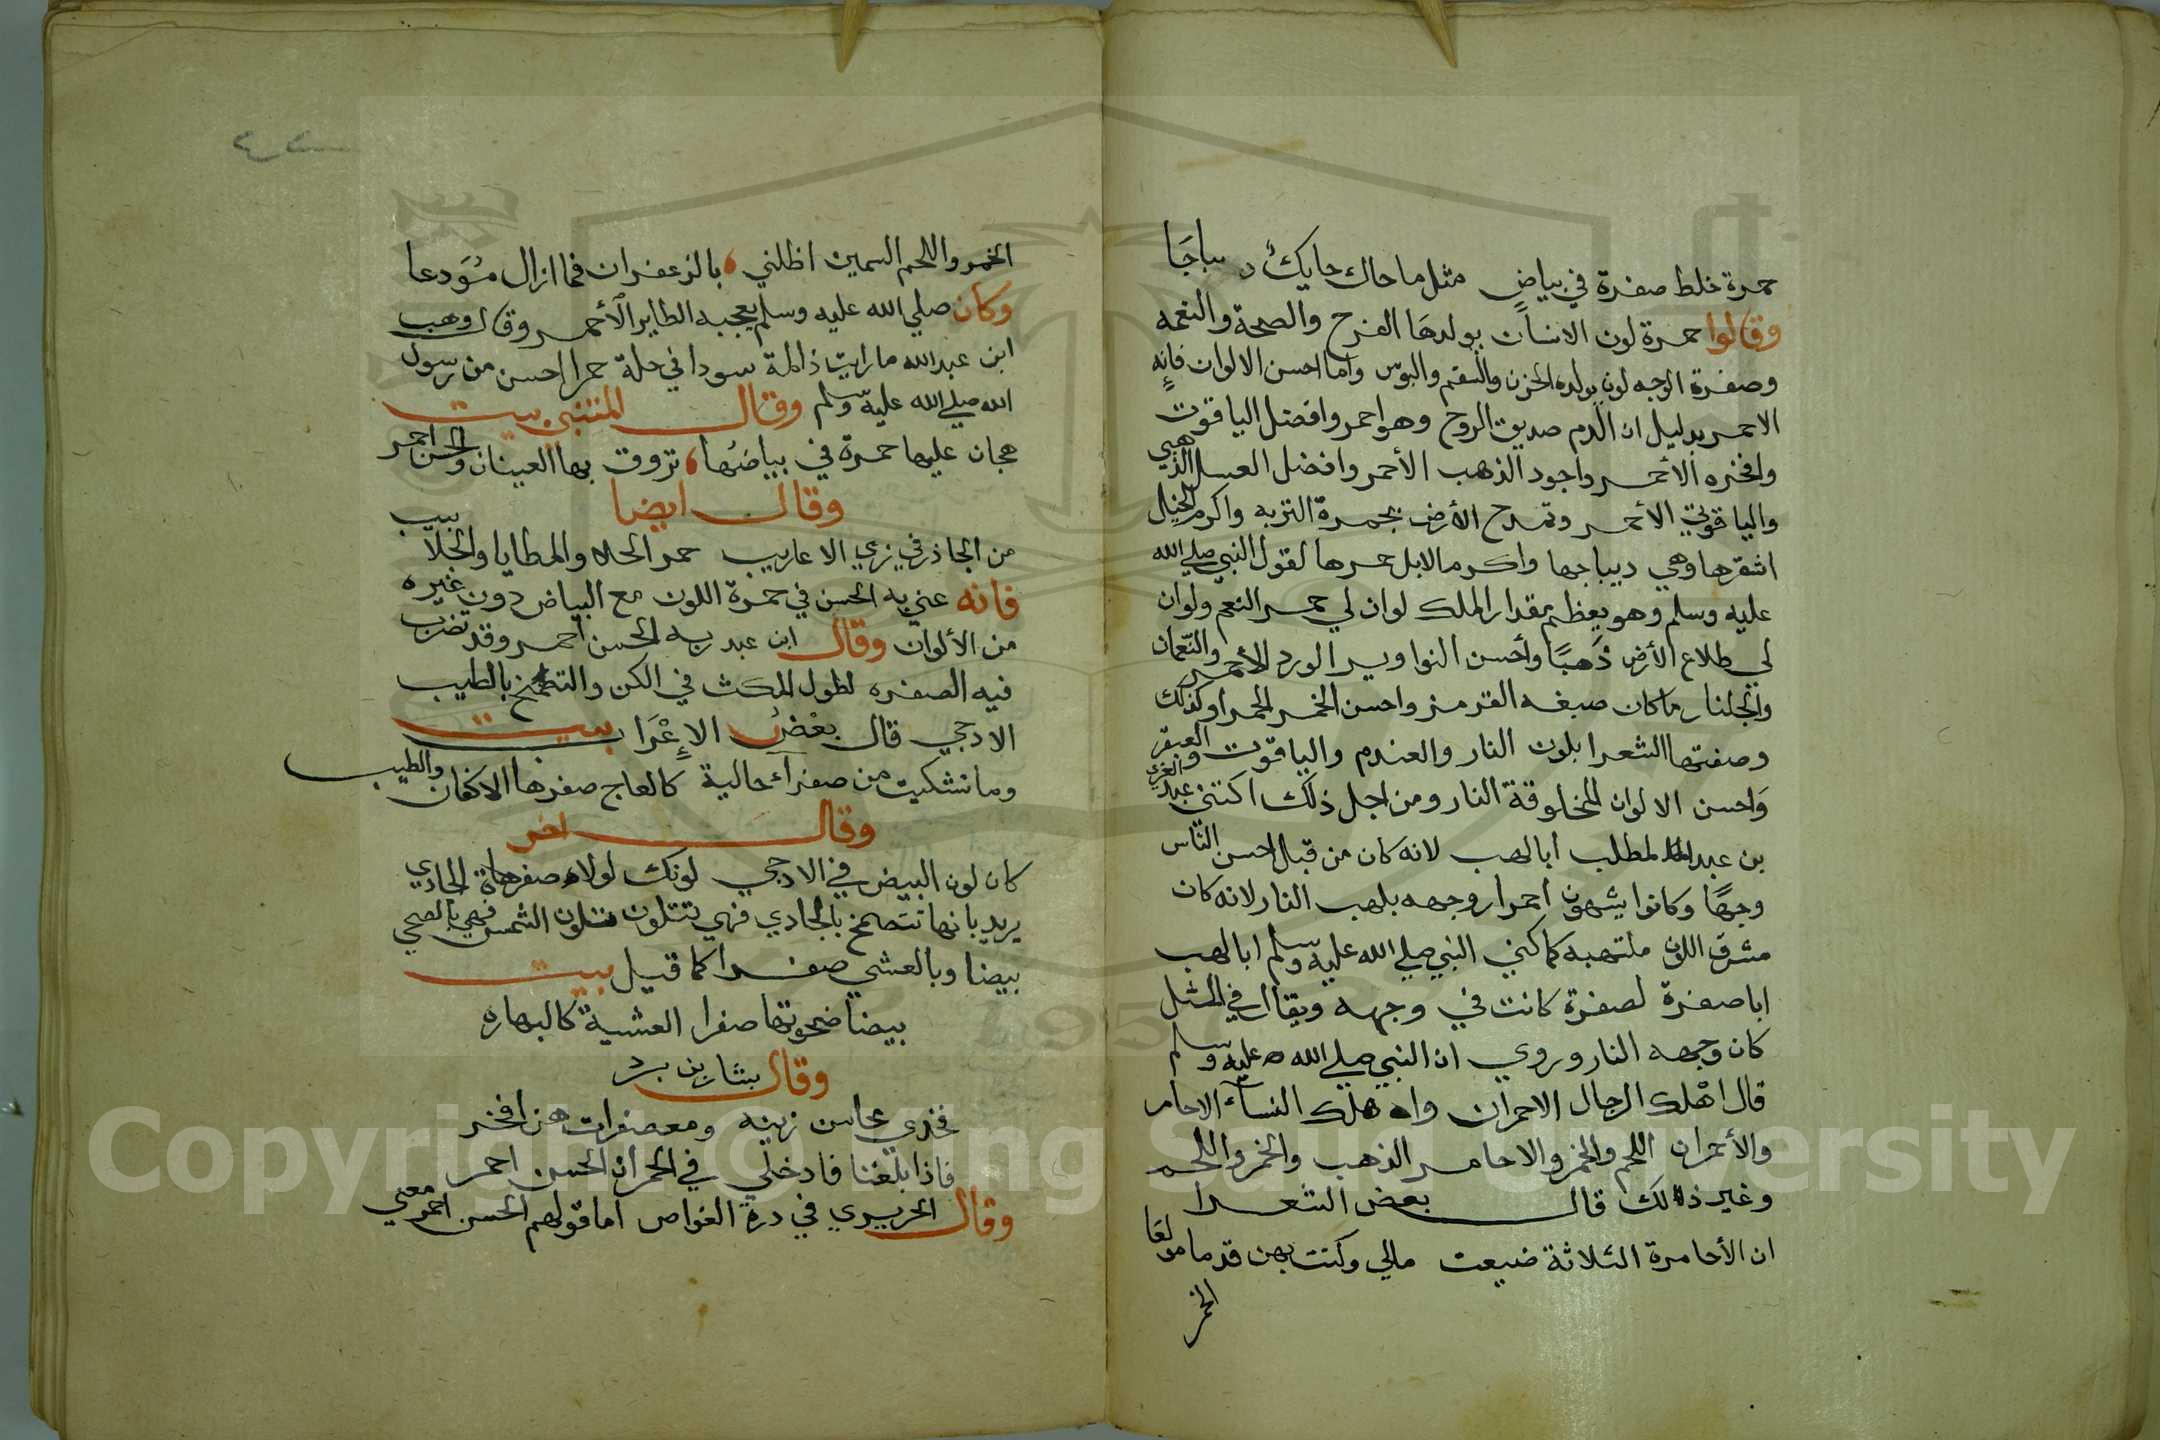 حمرة خلط صفرة في بياض مثل ما حاك حايك ديباجا
وقالوا حمرة لون الانسان يولدها الفرح والصحة والنعمه
وصفرة الوجه لون يولده الحزن والسقم والبوس واما احسن الالوان فانه
الاحمر بدليل ان الدم صديق الروح وهو احمر وافضل الياقوت
وافخره الاحمر واجود الذهب الأحمر وافضل العسل الذهبي
والياقوتي الأحمر وتمدح الأرض بحمرة التربه واكرم الخيال
اشقرها وهي ديباجها واكرم الابل حمرها لقول النبي صلي الله
عليه وسلم وهو يعظم بمقدار الملك لو ان لي حمر النعم ولو ان
لي طلاع الأرض ذهبًا وأحسن النواوير الورد الأحمر والنّعمان
والجلنار ما كان صبغه القرمز واحسن الخمر الحمرا وكذلك
وصفتها الشعرا بلون النار والعندم والياقوت والعبقر
وَاحسن الالوان المخلوقة النار ومن اجل ذلك اكتنى عبد العزي
بن عبد المطلب ابا لهب لانه كان من قبل احسن النّاس
وجهًا وكانوا يشبهون احمرار وجهه بلهب النار لانه كان
مشرق اللون ملتهبه كما كني النبي صلي الله عليه وسلم ابا لهب
ابا صفرة لصفرة كانت في وجهه ويقال في المثل
كان وجهه النار وروي ان النبي صلي الله عليه وسلم
قال اهْلك الرجال الاحمران واهلك النسآء الاحامر
والأحمران اللحم والخمر والاحامر الذهب والخمر واللحم
وغير ذلك قال بعض الشعرا
ان الأحامرة الثلاثة ضيعت مالي وكنت بهن قدما مولعَا
الخمر
الخمر واللحم السمين اظلني بالزعفران فما ازال مُوَدعا
وكان صلي الله عليه وسلم يعجبه الطاير الأحمر وقال وهب
ابن عبد الله ما رايت ذا لمة سودا في حلة حمرا احسن من رسول
الله صلي الله عليه وسلم وقال المتنبي بيت
هجان عليها حمرة في بياضها تروق بها العينان والحسن احمر
وقال ايضا
من الجاذر في زي الاعاريب حمر الحلا والمطايا والجلابيب
فانه عني به الحسن في حمرة اللون مع البياض دون غيره
من الألوان وقال ابن عبد ربه الحسن احمر وقد تضرب
فيه الصفره لطول المكث في الكن والتضمخ بالطيب
الادجي قال بعْضُ الإعْرَاب بيت
وما تشكيت من صفرآء حالية كالعاج صفرها الاكفان والطيب
وقال اخر
كان لون البيض في الادجي لونك لولا صفرة الجادي
يريد بانها تتضمخ بالجادي فهي تتلون بتلون الشمس فهي بالضحي
بيضا وبالعشي صفرا كما قيل بيت
بيضا ضحوتها صفرا العشية كالبهاره
وقال بشار بن برد
فخذي محاسن زينه ومعصفرات هن افخر
فاذا بلغنا فادخلي في الحمر ان الحسن احمر
وقال الحريري في درة الغواص اما قولهم الحسن احمر معني
Copyright © King Saud University
1957